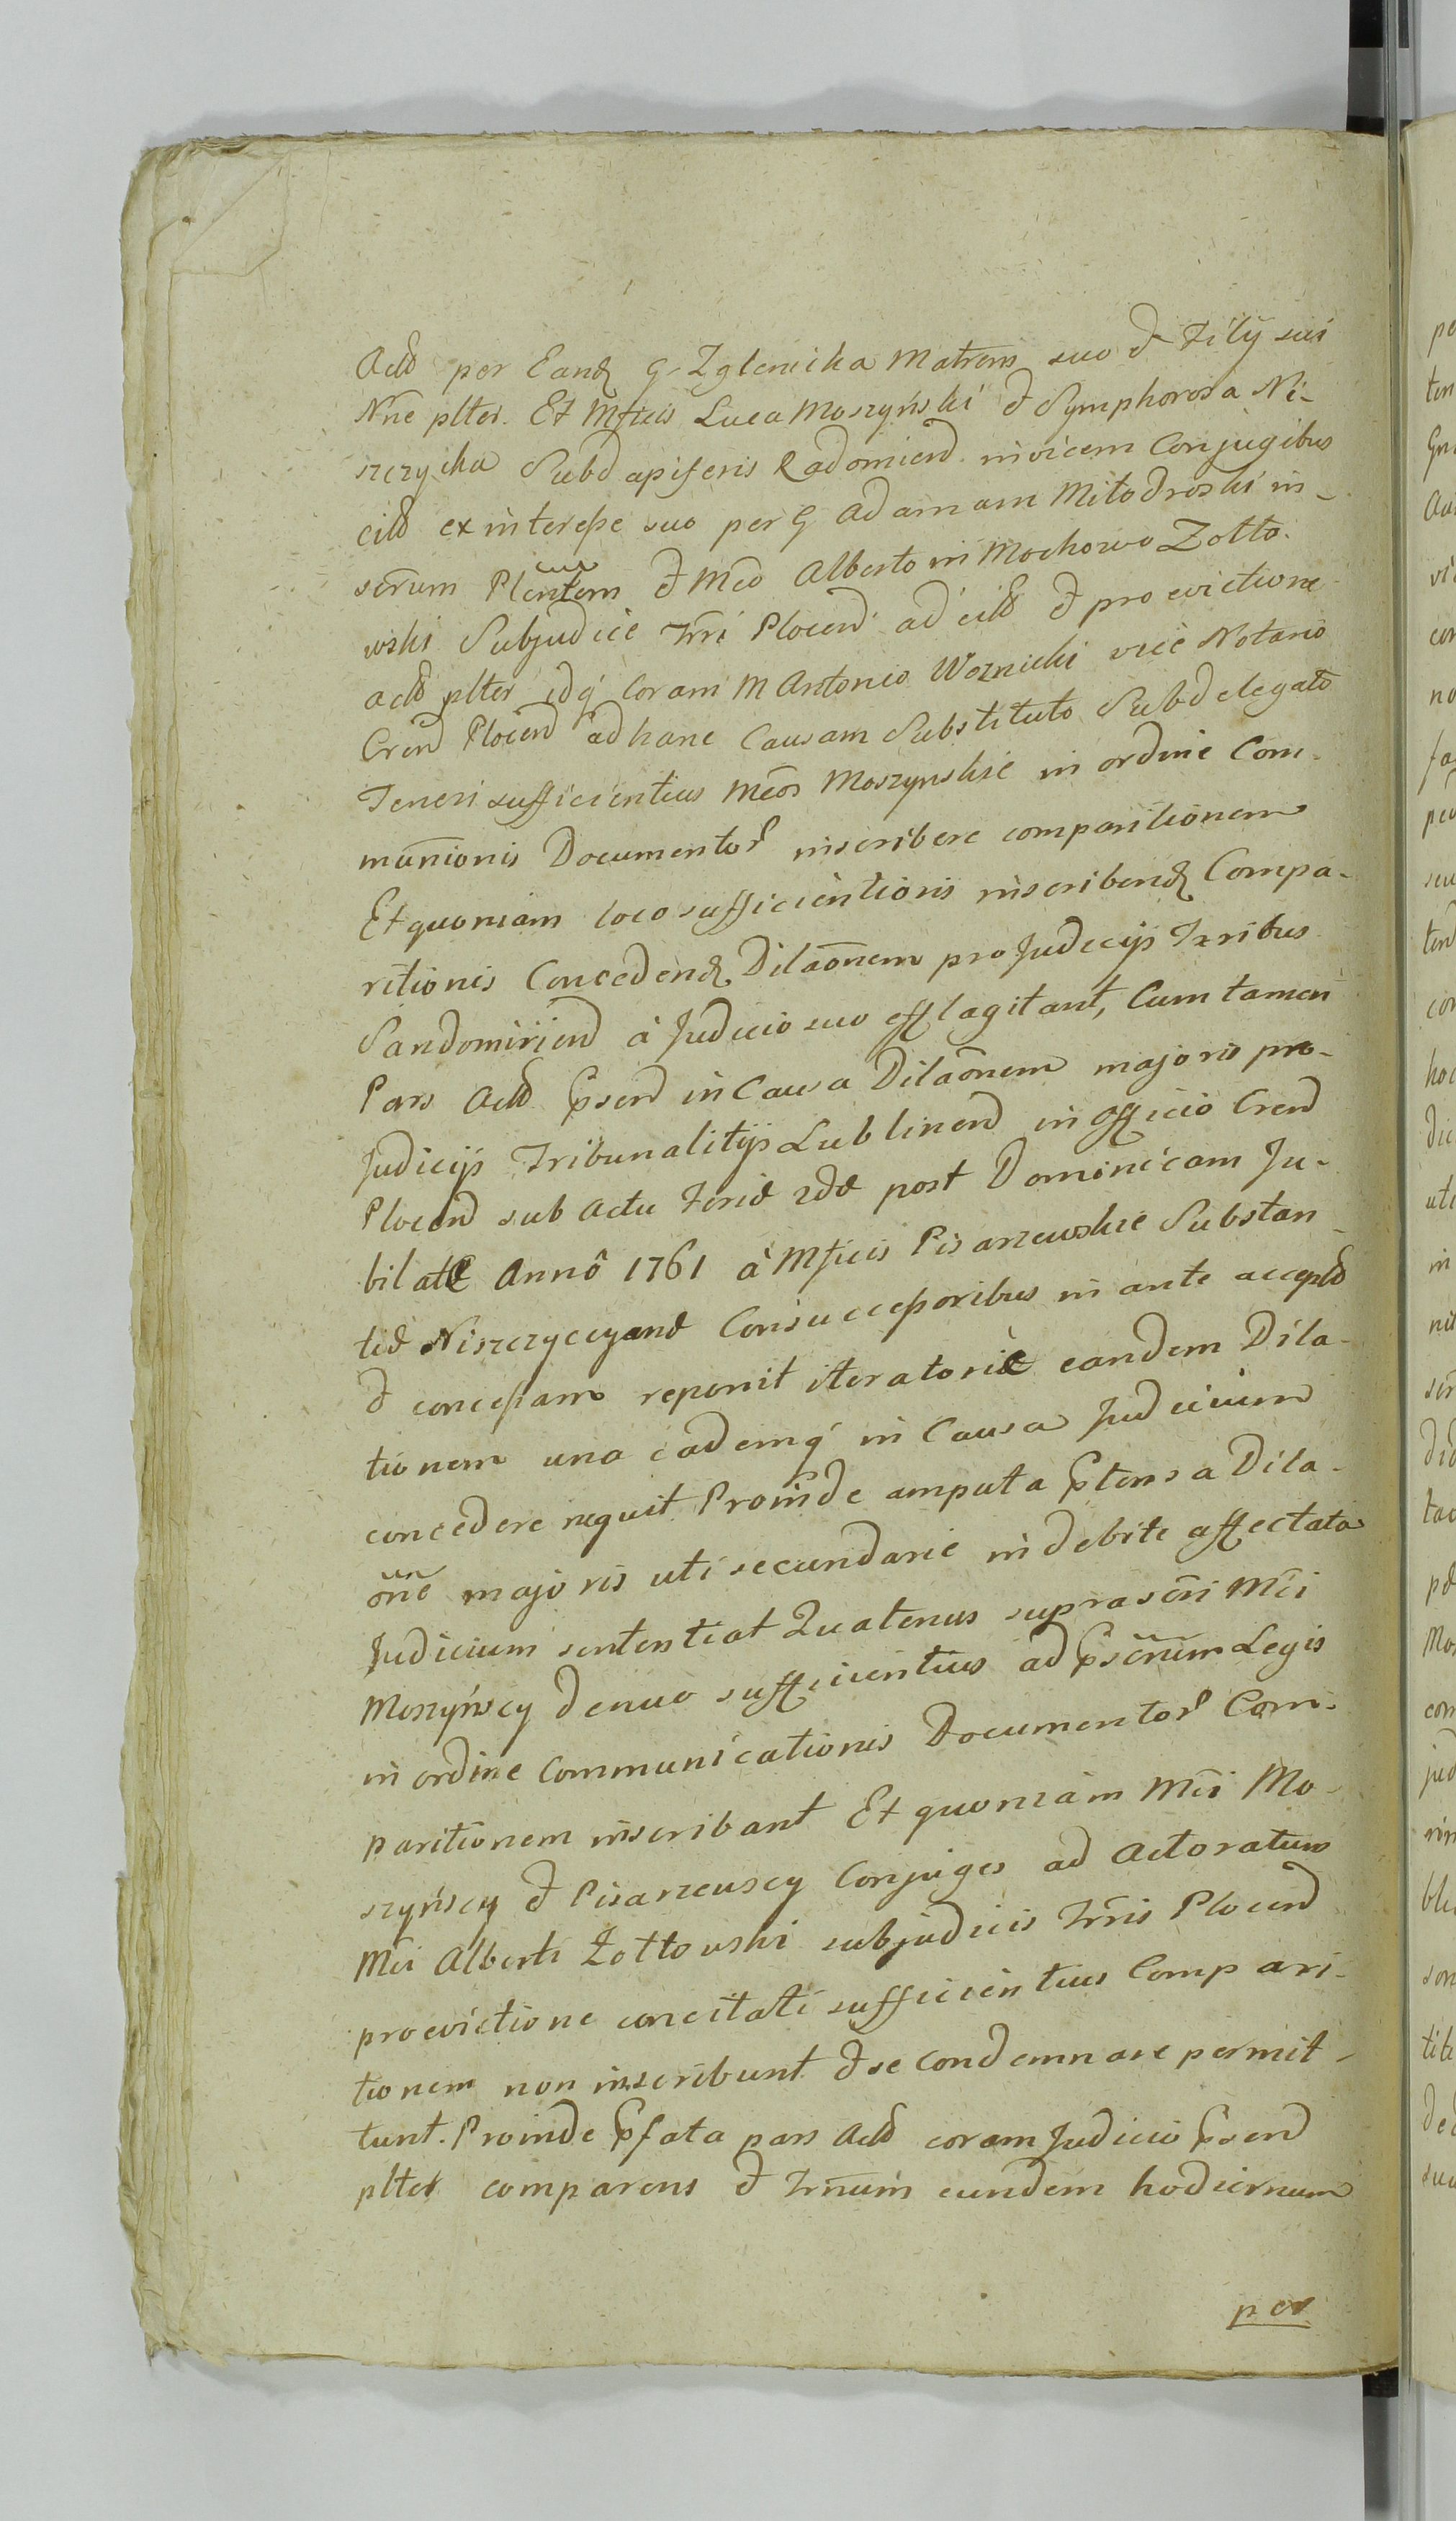 Actd per Eand G Zglenicka Matrem suo & Filij sui
Nne plter. Et Mficis Luca Moszyński & Symphorosa Ni-
szczycka Subdapiferis Radomiend invicem Conjugibus
citd ex interesse suo per G Adamam Miłodroski in-
scrum Plentem & Mco Alberto in Mochowo Zołto-
wski Subjudice Trri Plocend ad citd & pro evictione
actd plter idq Coram M Antonio Woznicki vice Notario
Crend Plocend ad hanc Causam Substituto Subdelegato
Teneri sufficientius Mcos Moszynskie in ordine Com-
munionis Documentor inscribere comparitionem
Et quoniam loco sufficientioris inscribend Compa-
ritionis Concedend Dilaonem pro Judicijs Trribus
Sandomiriend à Judicio suo efflagitant, Cum tamen
Pars Actd Pserd in Causa Dilaonem majoris pro
Judicijs Tribunalitijs Lublinend in Officio Crend
Plocend sub actu Feriæ 2dæ post Dominicam Ju-
bilate Annô 1761 à Mficis Pisarzewskie Substan-
tiæ Niszczycyanæ Consuccessoribus in ante acceptd
& concessam reponit iteratoriè eandem Dila-
tionem una eademq in Causa Judicium
concedere nequit Proinde amputa Ptensa Dila-
one majoris uti secundarie indebite affectata
Judicium sententiat Quatenus suprascri Mci
Moszyńscy denuo sufficientius ad Pscrum Legis
in ordine Communicationis Documentor Com-
paritionem inscribant Et quoniam Mci Mo-
szyńscy & Pisarzewscy Conjuges ad Actoratum
Mci Alberti Zołtowski subjudicis Trris Plocend
pro evictione concitati sufficientius Compari-
tionem non inscribunt & se Condemnare permit-
tunt. Proinde Pfata pars Actd coram Judicio Pserd
plter comparens & Trnum eundem hodiernum
per